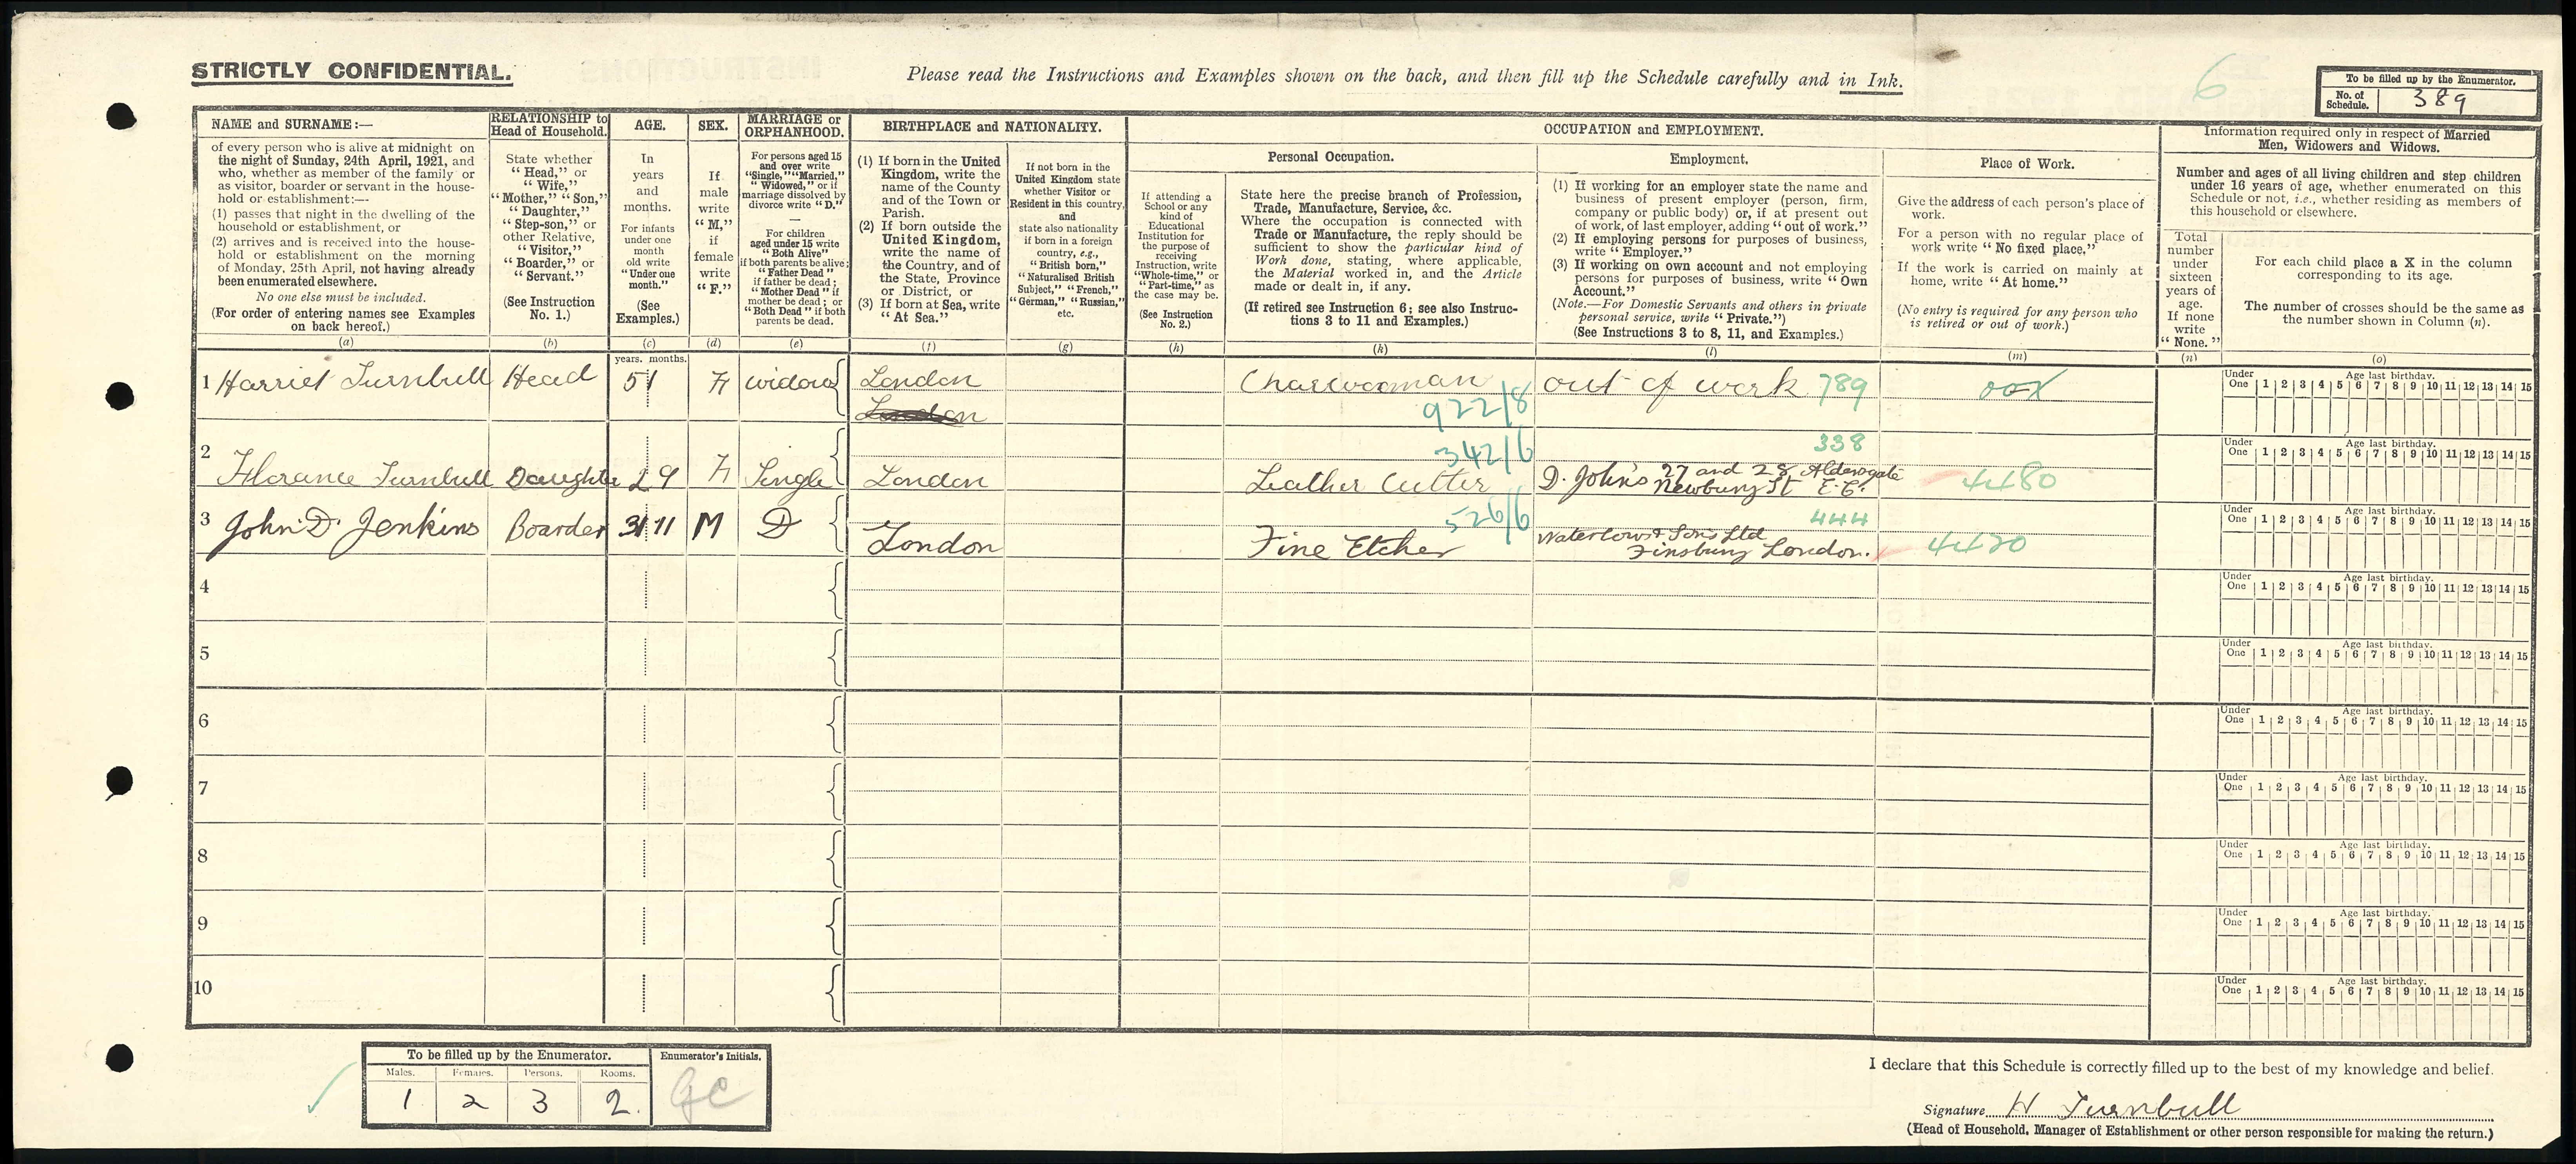 STRICTLY CONFIDENTIAL.
Please read the Instructions and Examples shown on the back, and then fill up the Schedule carefully and in Ink.
6
To be filled up by the Enumerator.
No. of Schedule. 389
NAME and SURNAME:—
of every person who is alive at midnight on
the night of Sunday, 24th April, 1921, and
who, whether as member of the family or
as visitor, boarder or servant in the house-
hold or establishment:—
(1) passes that night in the dwelling of the
household or establishment, or
(2) arrives and is received into the house-
hold or establishment on the morning
of Monday, 25th April, not having already
been enumerated elsewhere.
No one else must be included.
(For order of entering names see Examples
on back hereof.)
(a)
RELATIONSHIP to
Head of Household.
State whether
"Head," or
"Wife,"
"Mother," "Son,"
"Daughter,"
"Step-son," or
other Relative,
"Visitor,"
"Boarder," or
"Servant."
(See Instruction
No. 1.)
(b)
AGE.
In
years
and
months.
For infants
under one
month
old write
"Under one
month."
(See
Examples.)
(c)
years. months.
SEX.
If
male
write
"M,"
if
female
write
"F."
(d)
MARRIAGE or
ORPHANHOOD.
For persons aged 15
and over write
"Single," "Married,"
"Widowed," or if
marriage dissolved by
divorce write "D."
—
For children
aged under 15 write
"Both Alive"
if both parents be alive;
"Father Dead"
if father be dead;
"Mother Dead" if
mother be dead; or
"Both Dead" if both
parents be dead.
(e)
BIRTHPLACE and NATIONALITY.
(1) If born in the United
Kingdom, write the
name of the County
and of the Town or
Parish.
(2) If born outside the
United Kingdom,
write the name of
the Country, and of
the State, Province
or District, or
(3) If born at Sea, write
"At Sea."
(f)
If not born in the
United Kingdom state
whether Visitor or
Resident in this country,
and
state also nationality
if born in a foreign
country, e.g.,
"British born,"
"Naturalised British
Subject," "French,"
"German," "Russian,"
etc.
(g)
OCCUPATION and EMPLOYMENT.
If attending a
School or any
kind of
Educational
Institution for
the purpose of
receiving
Instruction, write
"Whole-time," or
"Part-time," as
the case may be.
(See Instruction
No. 2.)
(h)
Personal Occupation.
State here the precise branch of Profession,
Trade, Manufacture, Service, &c.
Where the occupation is connected with
Trade or Manufacture, the reply should be
sufficient to show the particular kind of
Work done, stating, where applicable,
the Material worked in, and the Article
made or dealt in, if any.
(If retired see Instruction 6; see also Instruc-
tions 3 to 11 and Examples.)
(k)
Employment.
(1) If working for an employer state the name and
business of present employer (person, firm,
company or public body) or, if at present out
of work, of last employer, adding "out of work."
(2) If employing persons for purposes of business,
write "Employer."
(3) If working on own account and not employing
persons for purposes of business, write "Own
Account."
(Note.—For Domestic Servants and others in private
personal service, write "Private.")
(See Instructions 3 to 8, 11, and Examples.)
(l)
Place of Work.
Give the address of each person's place of
work.
For a person with no regular place of
work write "No fixed place."
If the work is carried on mainly at
home, write "At home."
(No entry is required for any person who
is retired or out of work.)
(m)
Information required only in respect of Married
Men, Widowers and Widows.
Number and ages of all living children and step children
under 16 years of age, whether enumerated on this
Schedule or not, i.e., whether residing as members of
this household or elsewhere.
Total
number
under
sixteen
years of
age.
If none
write
"None."
(n)
For each child place a X in the column
corresponding to its age.
The number of crosses should be the same as
the number shown in Column (n).
(o)
1 Harriet Turnbull Head 51 F widow London Charwoman out of work 789 00X
London 922/8
Under One Age last birthday. 1 2 3 4 5 6 7 8 9 10 11 12 13 14 15
342/6 338
2 Florance Turnbull Daughter 29 F Single London Leather Cutter D. John's 27 and 28 Aldersgate
Newbury St E.C. 4480
Under One Age last birthday. 1 2 3 4 5 6 7 8 9 10 11 12 13 14 15
526/6 444
3 John D. Jenkins Boarder 31 11 M D London Fine Etcher Waterlow & Sons Ltd
Finsbury London. 4420
Under One Age last birthday. 1 2 3 4 5 6 7 8 9 10 11 12 13 14 15
4 Under One Age last birthday. 1 2 3 4 5 6 7 8 9 10 11 12 13 14 15
5 Under One Age last birthday. 1 2 3 4 5 6 7 8 9 10 11 12 13 14 15
6 Under One Age last birthday. 1 2 3 4 5 6 7 8 9 10 11 12 13 14 15
7 Under One Age last birthday. 1 2 3 4 5 6 7 8 9 10 11 12 13 14 15
8 Under One Age last birthday. 1 2 3 4 5 6 7 8 9 10 11 12 13 14 15
9 Under One Age last birthday. 1 2 3 4 5 6 7 8 9 10 11 12 13 14 15
10 Under One Age last birthday. 1 2 3 4 5 6 7 8 9 10 11 12 13 14 15
To be filled up by the Enumerator. Enumerator's Initials.
Males. Females. Persons. Rooms.
1 2 3 2. GC
I declare that this Schedule is correctly filled up to the best of my knowledge and belief.
Signature H Turnbull
(Head of Household, Manager of Establishment or other person responsible for making the return.)